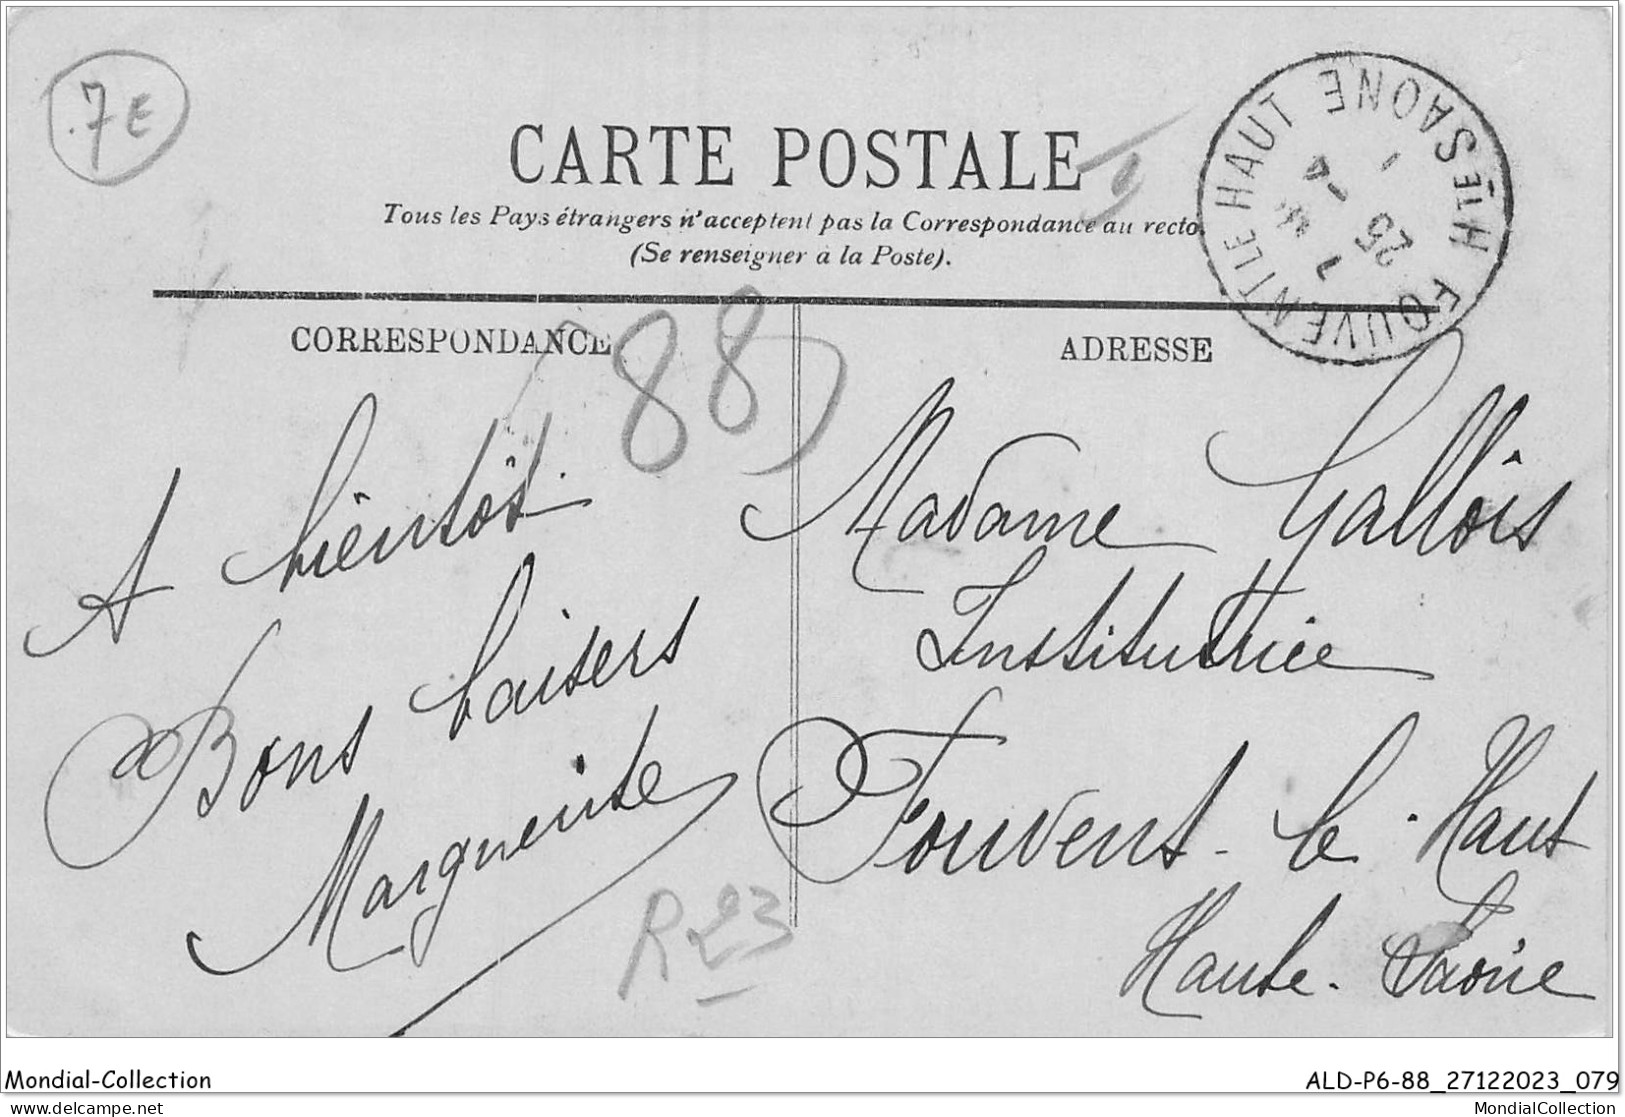 7E
CARTE POSTALE
Tous les Pays étrangers n'acceptent pas la Correspondance au recto.
(Se renseigner à la Poste).
FOUVENT LE HAUT HTE SAONE
25
CORRESPONDANCE
88
ADRESSE
A bientôt.
Bons baisers
Marguerite
R23
Madame Gallois
Institutrice
Fouvent-le-Haut
Haute-Saône
Mondial-Collection
ALD-P6-88_27122023_079
www.delcampe.net
MondialCollection